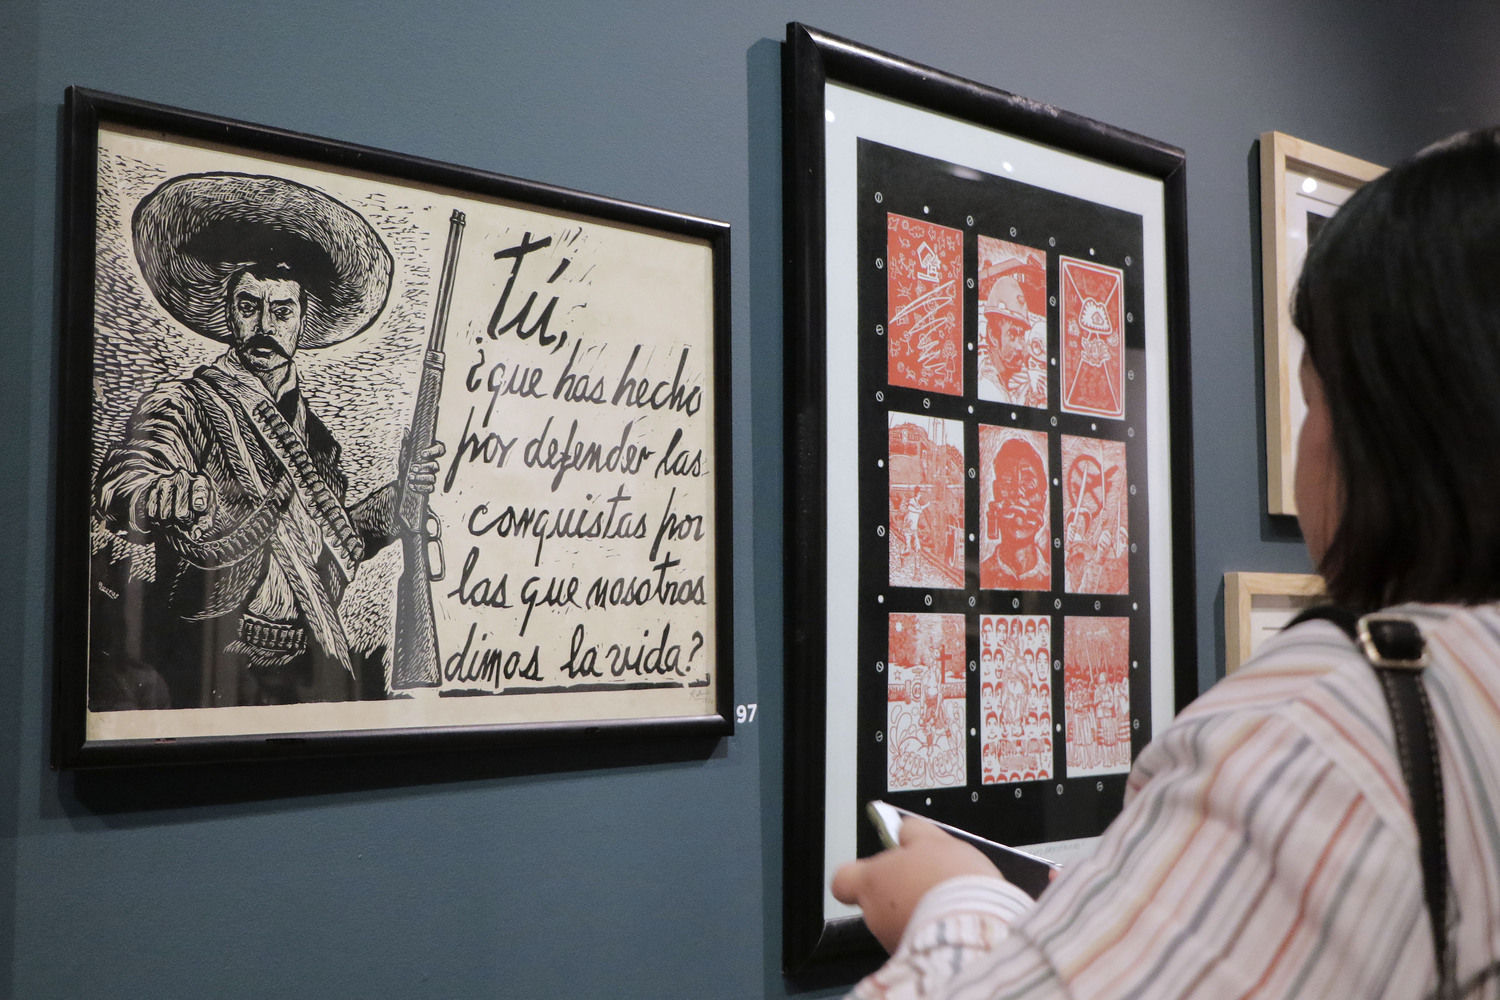 tú,
¿que has hecho
por defender las
conquistas por
las que nosotros
dimos la vida?
97